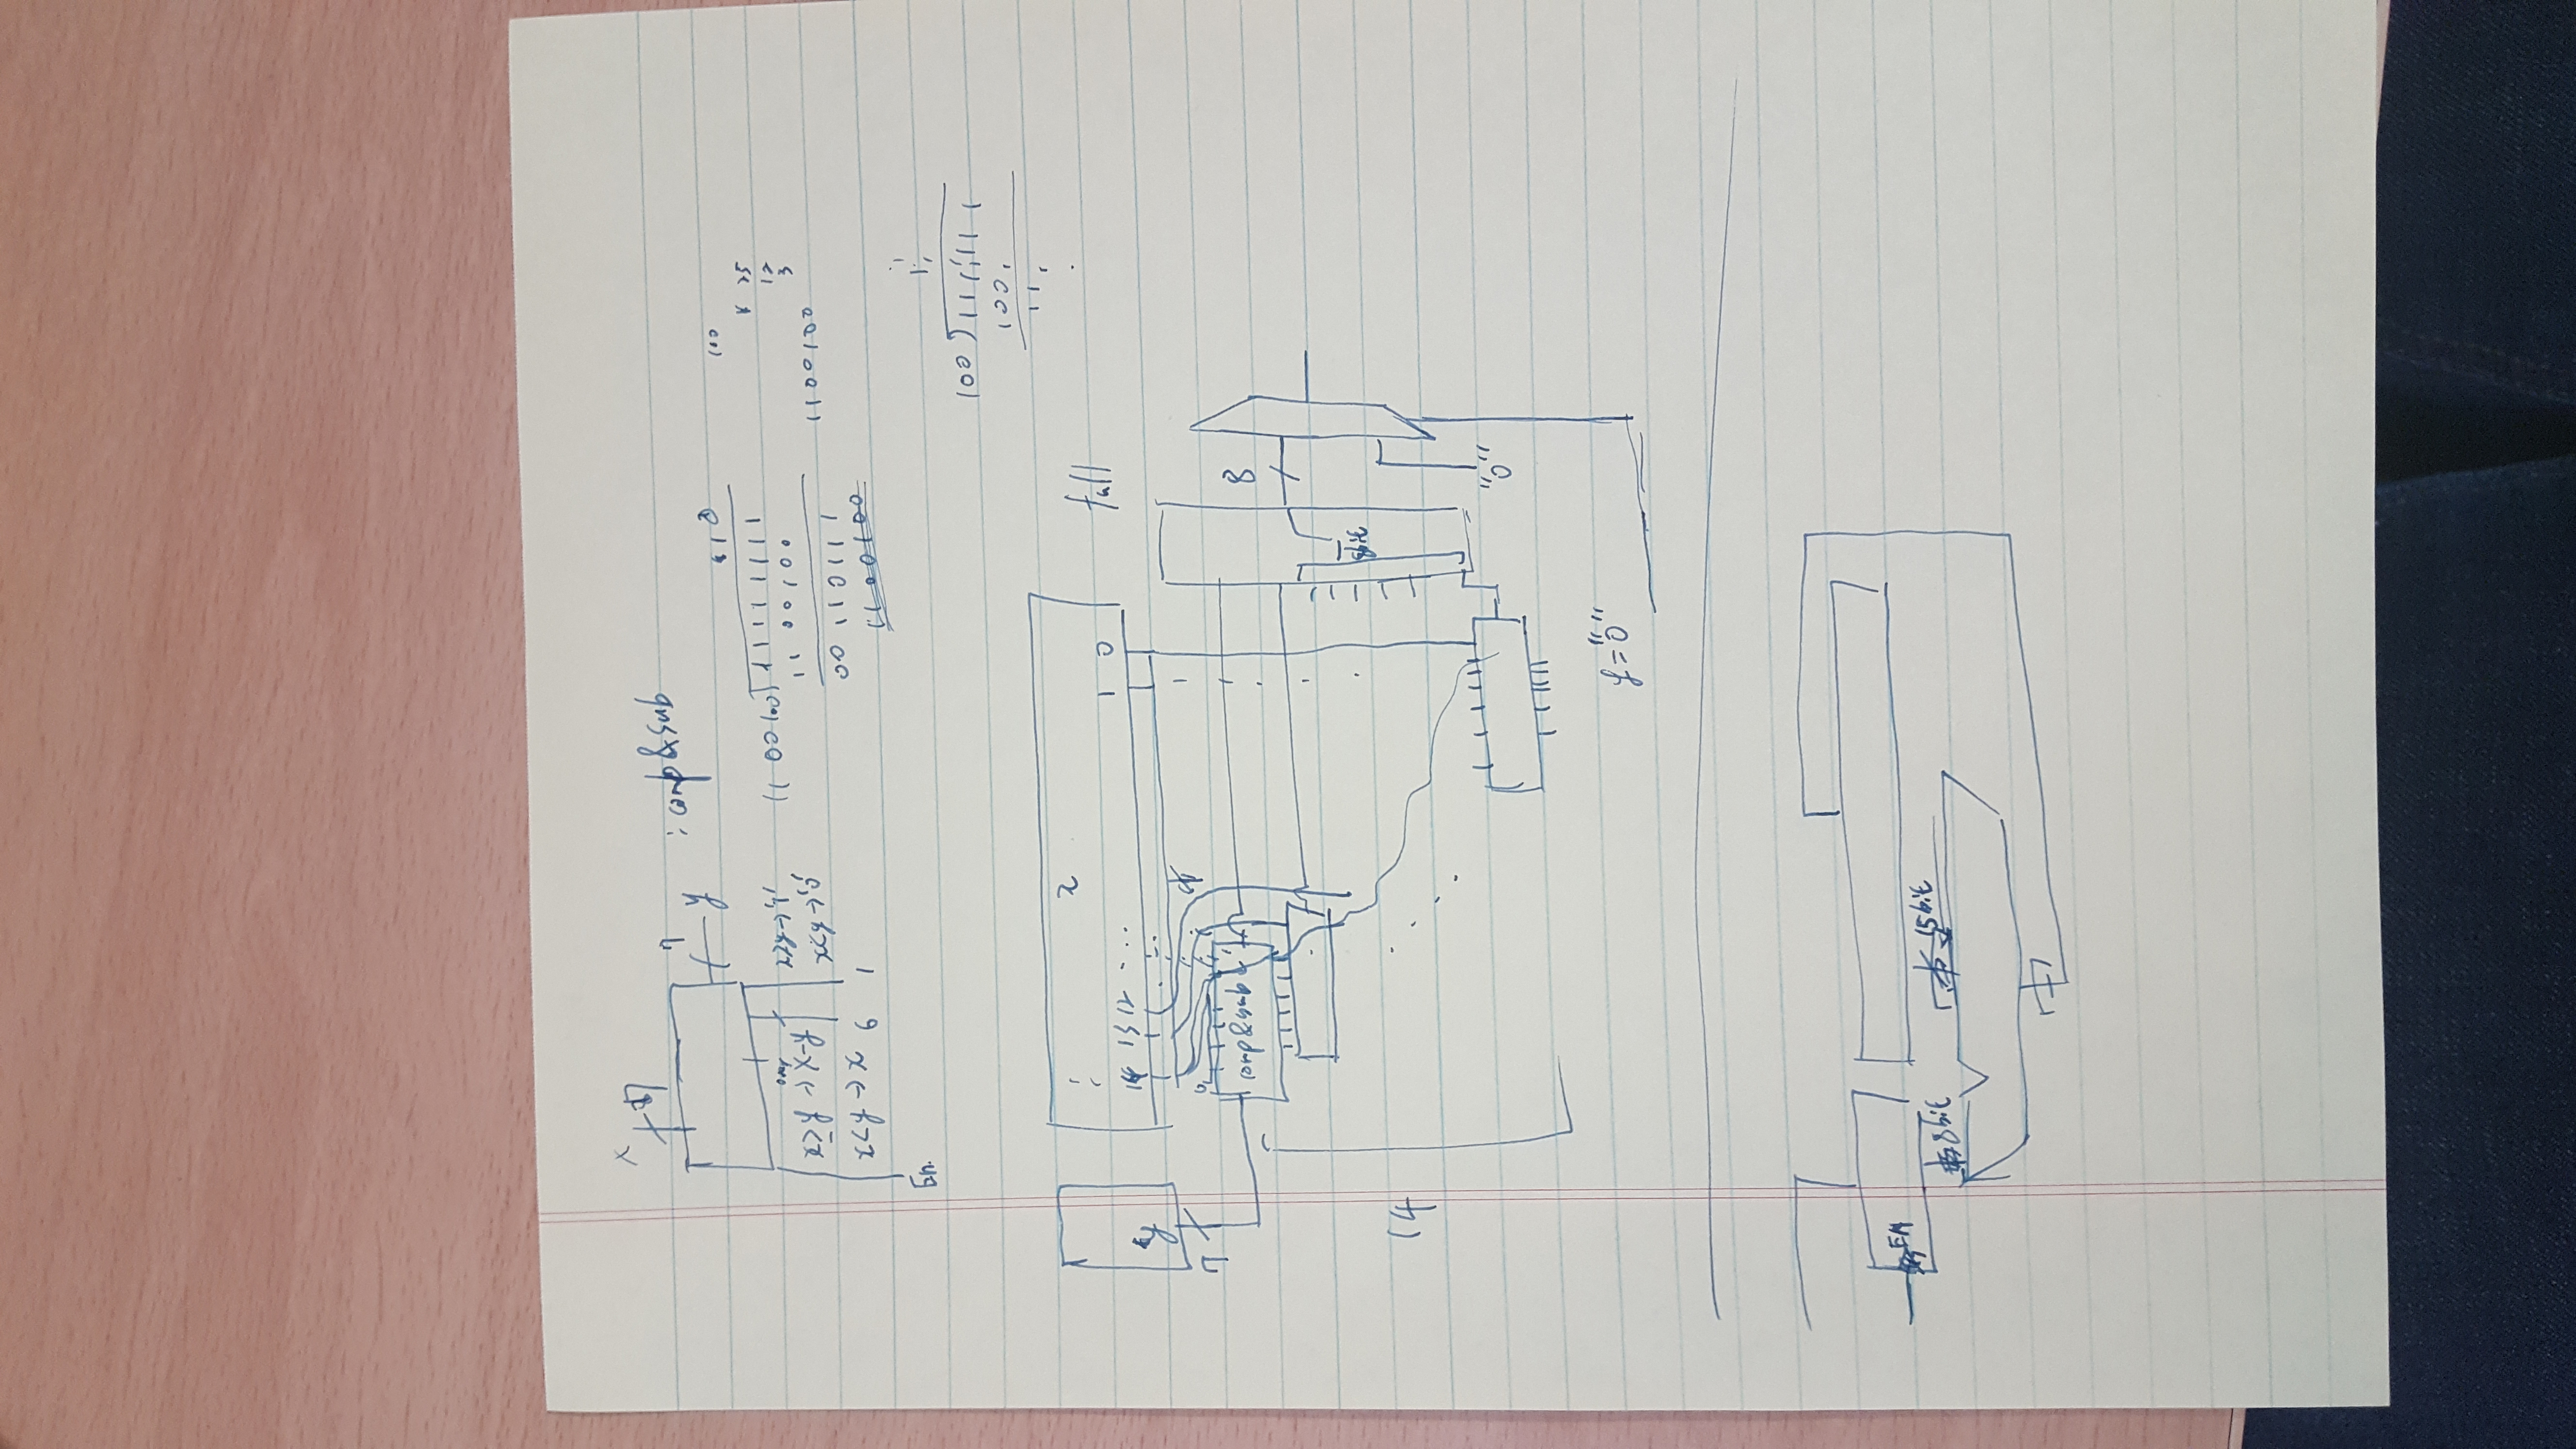 x 7
7 y : comp&sub
x≥y → x-y
x<y → x 6 1
x≥y → '1'
x<y → '0'
En.
1 0
1100100 11111111
1100100
00 110111
1100100
100
25
12
3
1100100
1
100 111111
100
11
x
y
14 13 12 ... 1 0
7
comp&sub
8
14
"0"
y="0"
EN
8bit
15bit